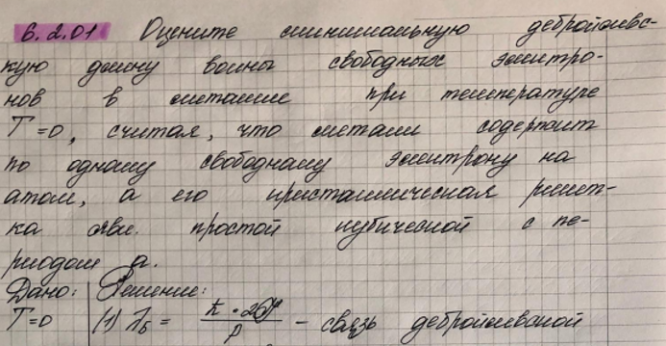 6.2.01 Оцените минимальную дебройлевс-
кую длину волны свободных электро-
нов в металле при температуре
T=0, считая, что металл содержит
по одному свободному электрону на
атом, а его кристаллическая решет-
ка явл. простой кубической с пе-
риодом a.
Дано: Решение:
T=0 (1) λ_Б = ħ·2π/p - связь дебройлевской